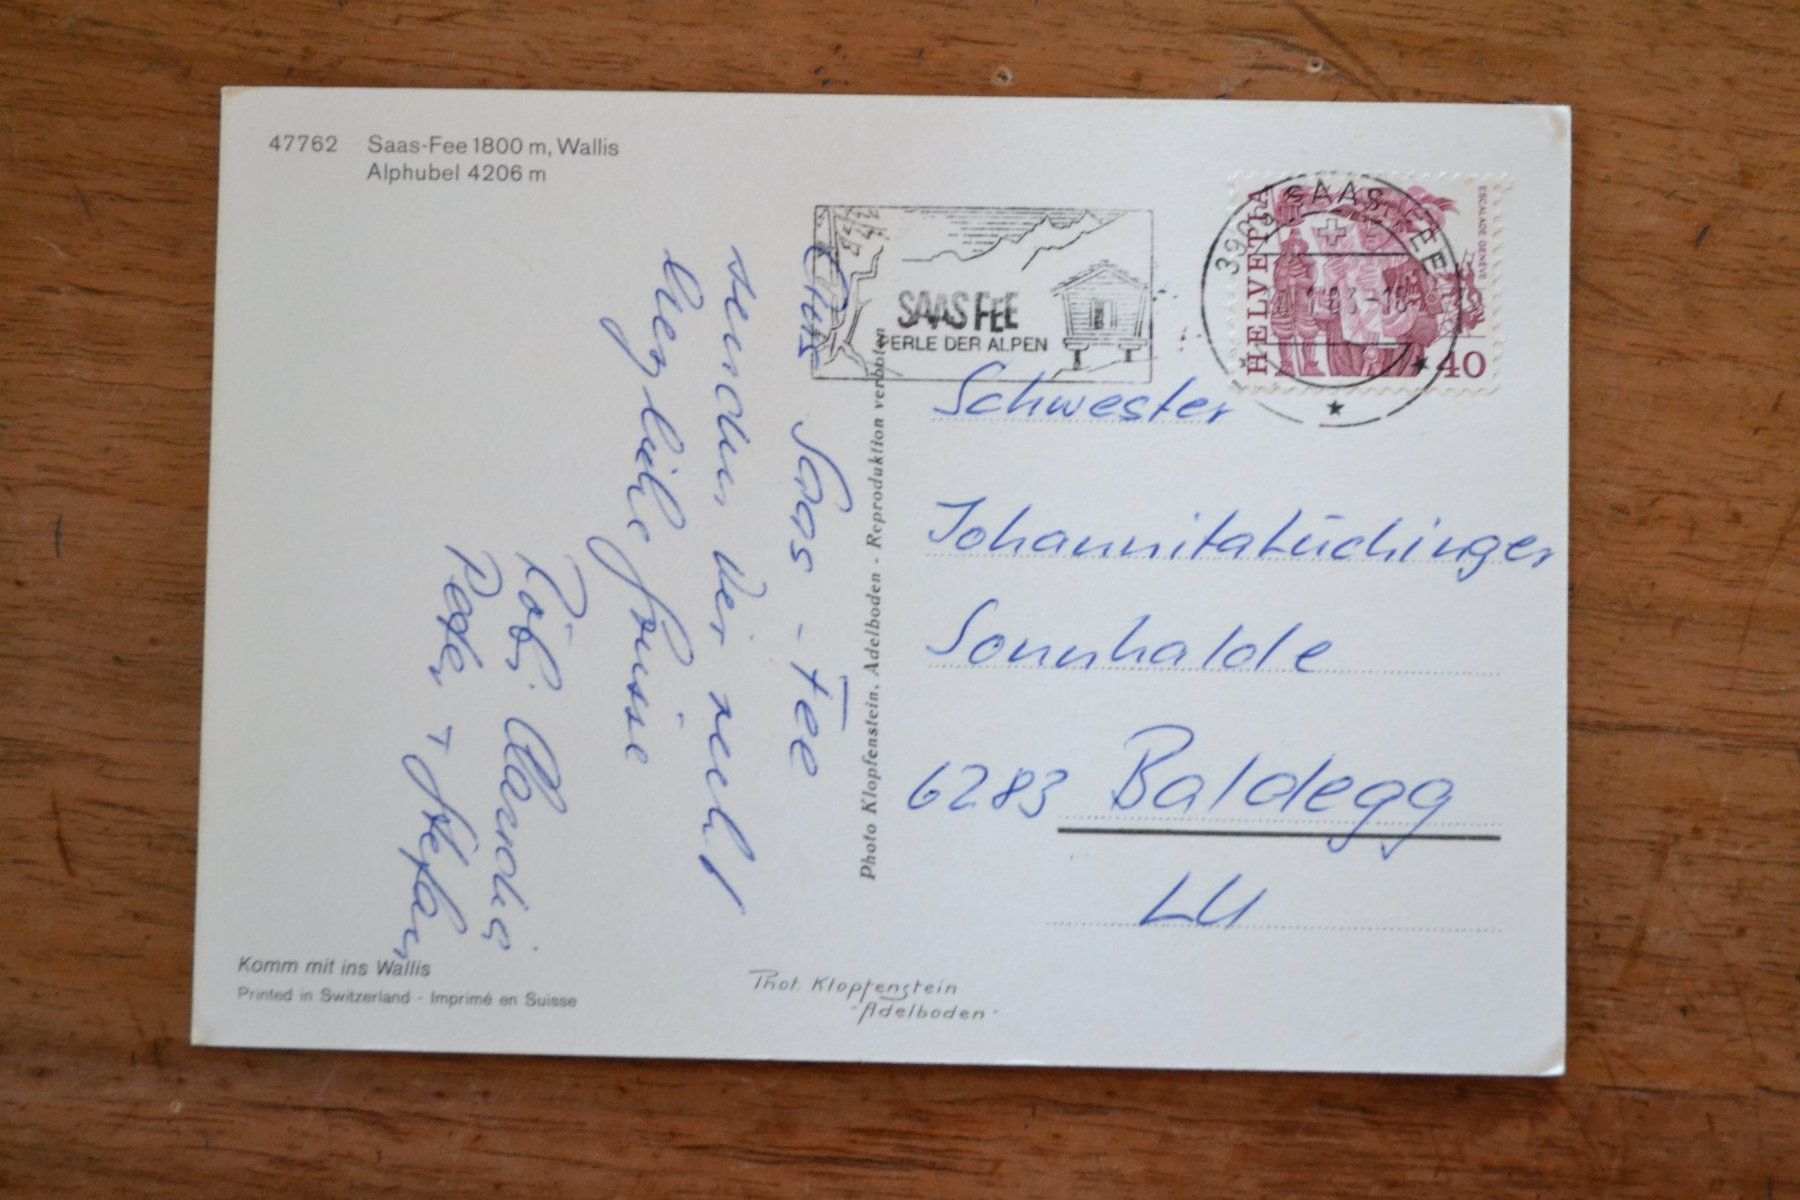 47762 Saas-Fee 1800 m, Wallis
Alphubel 4206 m
SAAS FEE
PERLE DER ALPEN
3906 SAAS-FEE
HELVETIA
ESCALADE GENÈVE
40
Aus Saas-Fee
senden wir recht
herzliche Grüsse
Röbi, Claudia,
Peter + Stefan
Photo Klopfenstein, Adelboden - Reproduktion verboten
Schwester
Johannita Lüchinger
Sonnhalde
6283 Baldegg
LU
Komm mit ins Wallis
Printed in Switzerland - Imprimé en Suisse
Phot. Klopfenstein
- Adelboden -